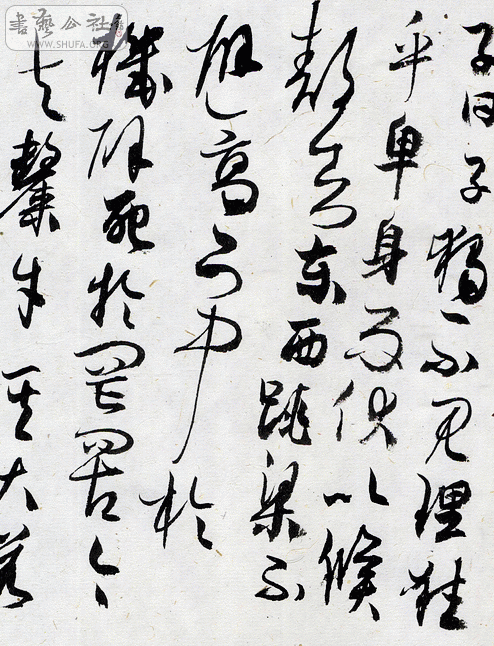 書藝公社
WWW.SHUFA.ORG
子曰子獨不見狸狌
乎卑身而伏以候
敖者東西跳梁不
避高下中於
機辟死於罔罟今
夫斄牛其大若